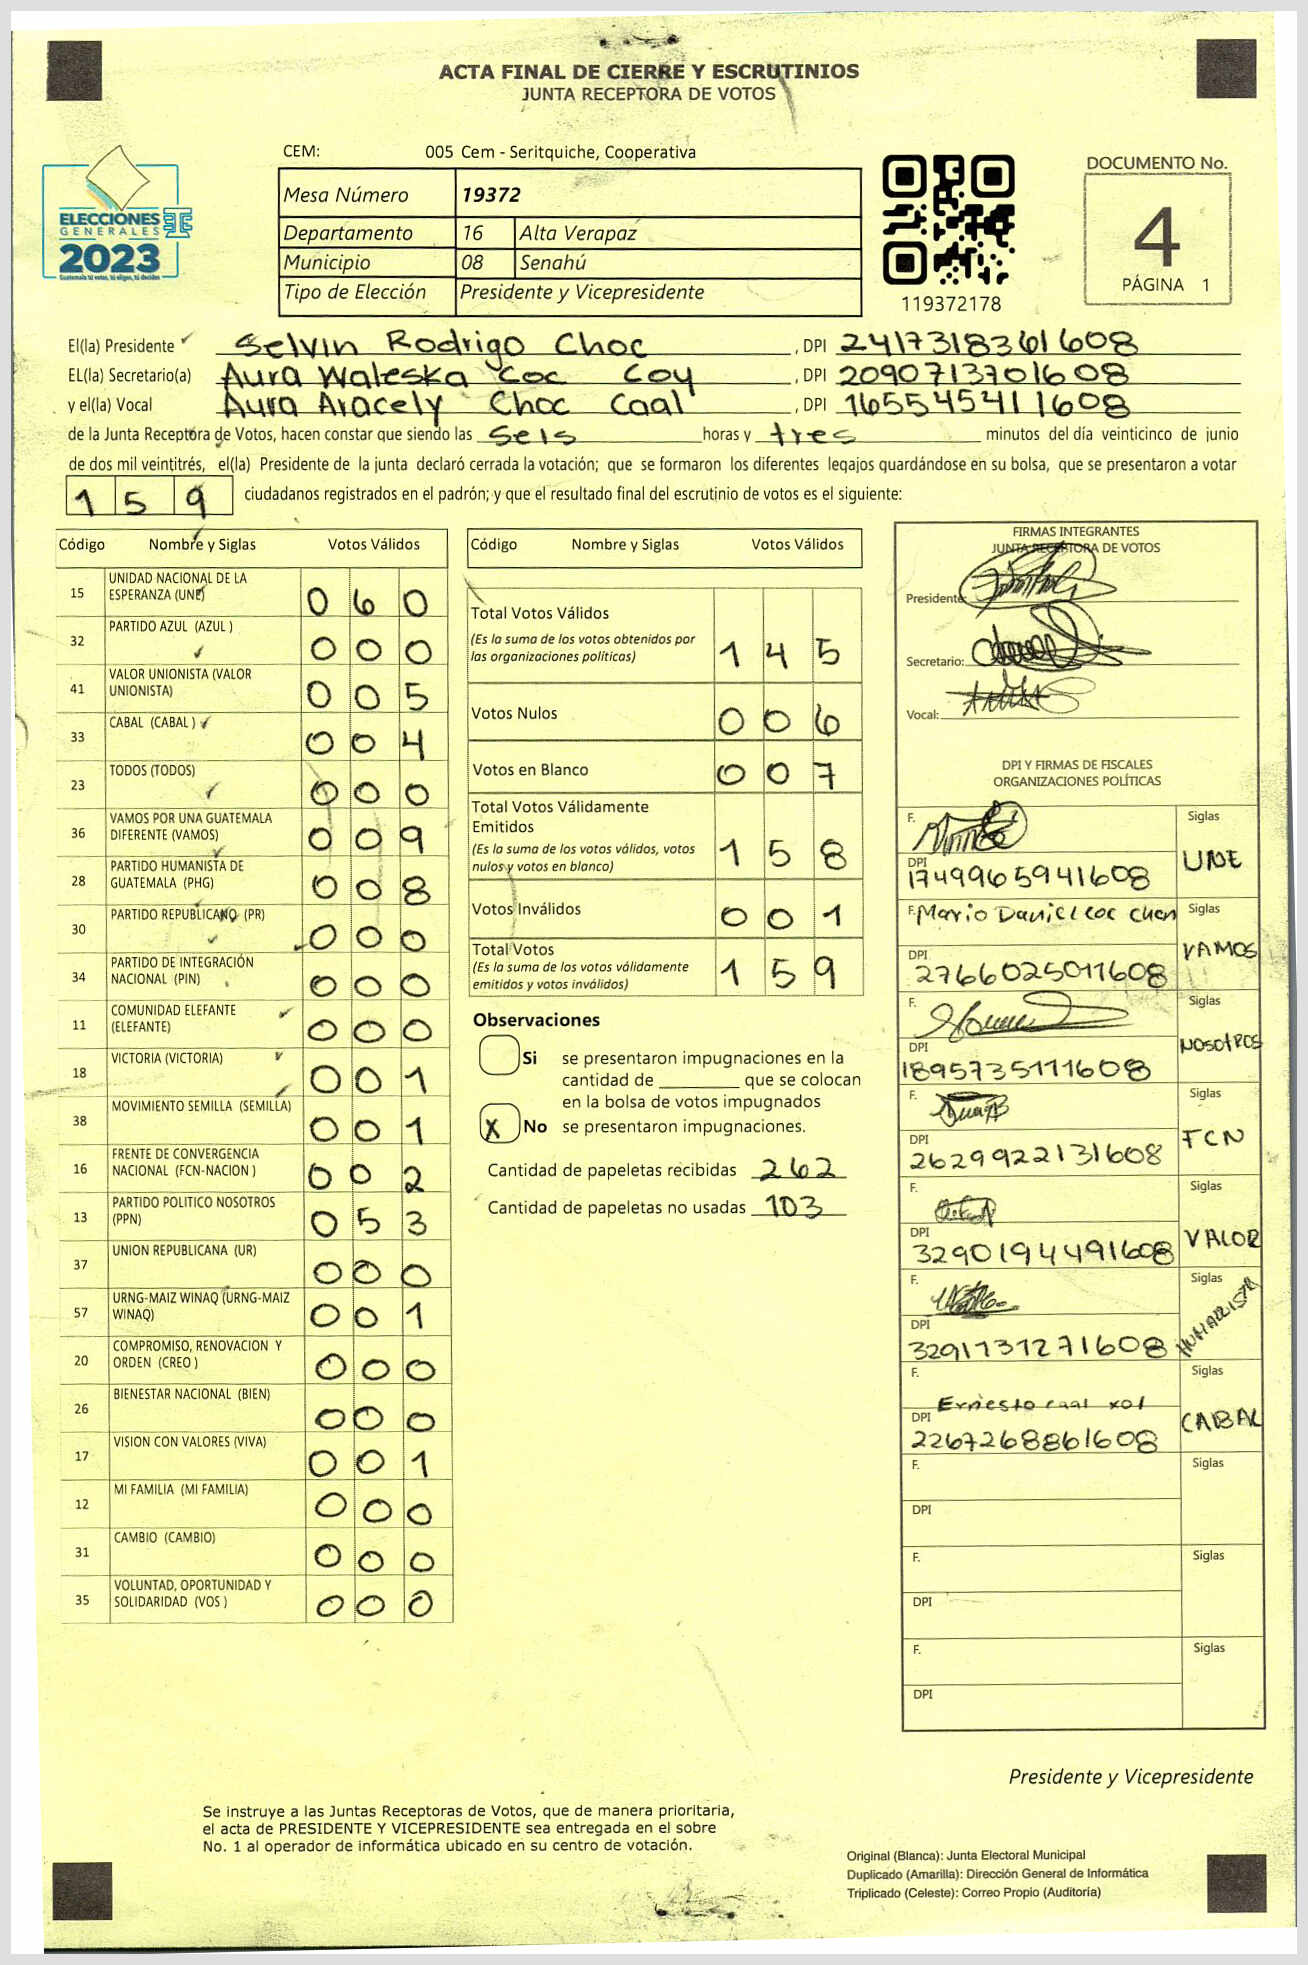 ACTA FINAL DE CIERRE Y ESCRUTINIOS
JUNTA RECEPTORA DE VOTOS
CEM: 005 Cem - Seritquiche, Cooperativa
ELECCIONES
GENERALES
2023
Guatemala tú votas, tú eliges, tú decides
Mesa Número 19372
Departamento 16 Alta Verapaz
Municipio 08 Senahú
Tipo de Elección Presidente y Vicepresidente
119372178
DOCUMENTO No.
4
PÁGINA 1
El(la) Presidente Selvin Rodrigo Choc , DPI 2417318361608
EL(la) Secretario(a) Aura Waleska Coc Coy , DPI 2090713701608
y el(la) Vocal Aura Aracely Choc Caal , DPI 1655454111608
de la Junta Receptora de Votos, hacen constar que siendo las seis horas y tres minutos del día veinticinco de junio
de dos mil veintitrés, el(la) Presidente de la junta declaró cerrada la votación; que se formaron los diferentes legajos guardándose en su bolsa, que se presentaron a votar
159 ciudadanos registrados en el padrón; y que el resultado final del escrutinio de votos es el siguiente:
Código Nombre y Siglas Votos Válidos
15 UNIDAD NACIONAL DE LA ESPERANZA (UNE) 060
32 PARTIDO AZUL (AZUL ) 000
41 VALOR UNIONISTA (VALOR UNIONISTA) 005
33 CABAL (CABAL ) 004
23 TODOS (TODOS) 000
36 VAMOS POR UNA GUATEMALA DIFERENTE (VAMOS) 009
28 PARTIDO HUMANISTA DE GUATEMALA (PHG) 008
30 PARTIDO REPUBLICANO (PR) 000
34 PARTIDO DE INTEGRACIÓN NACIONAL (PIN) 000
11 COMUNIDAD ELEFANTE (ELEFANTE) 000
18 VICTORIA (VICTORIA) 001
38 MOVIMIENTO SEMILLA (SEMILLA) 001
16 FRENTE DE CONVERGENCIA NACIONAL (FCN-NACION ) 002
13 PARTIDO POLITICO NOSOTROS (PPN) 053
37 UNION REPUBLICANA (UR) 000
57 URNG-MAIZ WINAQ (URNG-MAIZ WINAQ) 001
20 COMPROMISO, RENOVACION Y ORDEN (CREO ) 000
26 BIENESTAR NACIONAL (BIEN) 000
17 VISION CON VALORES (VIVA) 001
12 MI FAMILIA (MI FAMILIA) 000
31 CAMBIO (CAMBIO) 000
35 VOLUNTAD, OPORTUNIDAD Y SOLIDARIDAD (VOS ) 000
Código Nombre y Siglas Votos Válidos
Total Votos Válidos 145
(Es la suma de los votos obtenidos por
las organizaciones políticas)
Votos Nulos 006
Votos en Blanco 007
Total Votos Válidamente
Emitidos 158
(Es la suma de los votos válidos, votos
nulos y votos en blanco)
Votos Inválidos 001
Total Votos 159
(Es la suma de los votos válidamente
emitidos y votos inválidos)
Observaciones
Si se presentaron impugnaciones en la
cantidad de ________ que se colocan
en la bolsa de votos impugnados
X No se presentaron impugnaciones.
Cantidad de papeletas recibidas 262
Cantidad de papeletas no usadas 103
FIRMAS INTEGRANTES
JUNTA RECEPTORA DE VOTOS
Presidente:
Secretario:
Vocal:
DPI Y FIRMAS DE FISCALES
ORGANIZACIONES POLÍTICAS
F. Siglas
DPI 1749965941608 UNE
F. Mario Daniel coc chen Siglas
DPI 2766025011608 VAMOS
F. Siglas
DPI 1895735111608 NOSOTROS
F. Siglas
DPI 2629922131608 FCN
F. Siglas
DPI 3290194491608 VALOR
F. Siglas
DPI 3291131271608 HUMANISTA
F. Ernesto caal xol Siglas
DPI 2267268861608 CABAL
F. Siglas
DPI
F. Siglas
DPI
F. Siglas
DPI
Presidente y Vicepresidente
Se instruye a las Juntas Receptoras de Votos, que de manera prioritaria,
el acta de PRESIDENTE Y VICEPRESIDENTE sea entregada en el sobre
No. 1 al operador de informática ubicado en su centro de votación.
Original (Blanca): Junta Electoral Municipal
Duplicado (Amarilla): Dirección General de Informática
Triplicado (Celeste): Correo Propio (Auditoría)